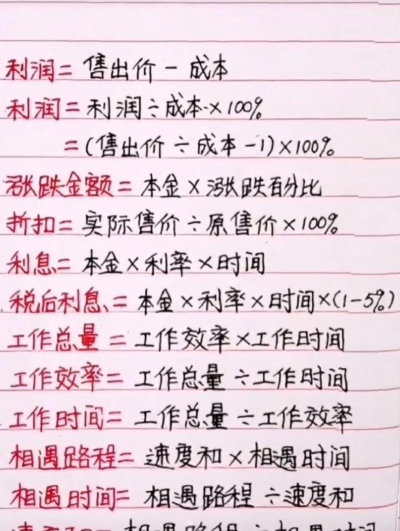 利润=售出价-成本
利润=利润÷成本×100%
=(售出价÷成本-1)×100%
涨跌金额=本金×涨跌百分比
折扣=实际售价÷原售价×100%
利息=本金×利率×时间
税后利息=本金×利率×时间×(1-5%)
工作总量=工作效率×工作时间
工作效率=工作总量÷工作时间
工作时间=工作总量÷工作效率
相遇路程=速度和×相遇时间
相遇时间=相遇路程÷速度和